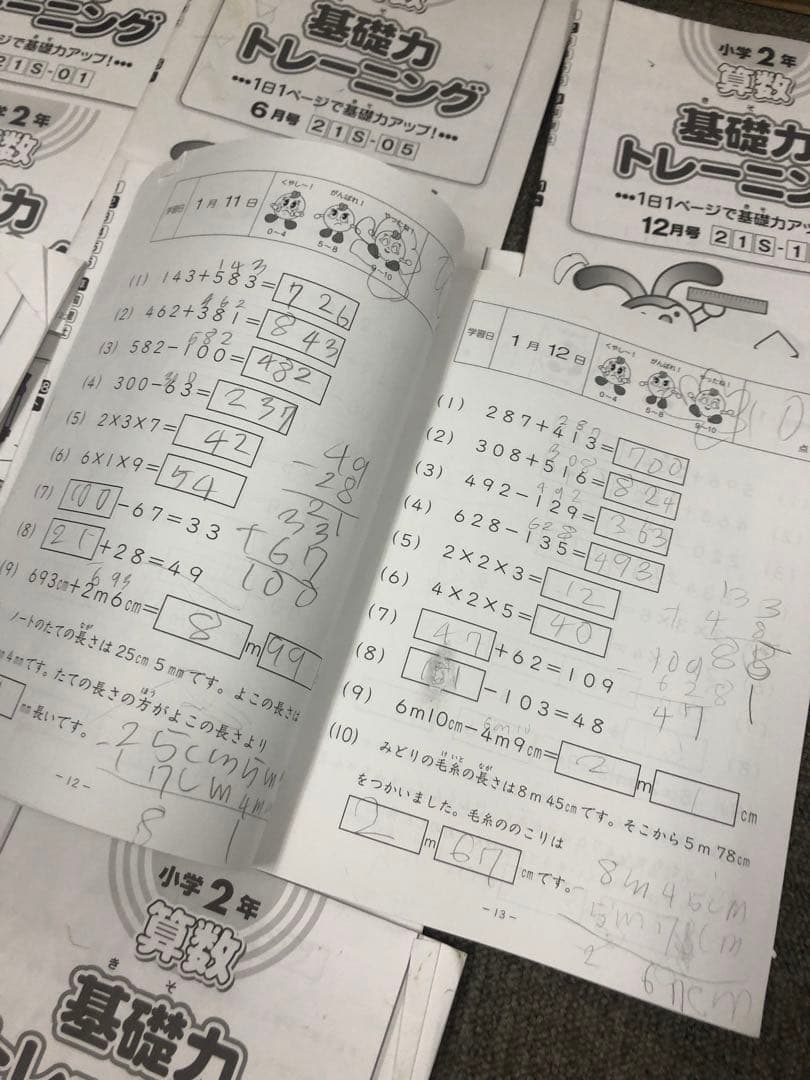 算数
基礎力
トレーニング
•••1日1ページで基礎力アップ!•••
6月号 21S-05
トレーニング
ジで基礎力アップ!•••
21S-01
小学2年
算数
小学2年
算数
基礎力
トレーニン
•••1日1ページで基礎力アッ
12月号 21S-1
学習日 1月11日
くやし〜! がんばれ! やったね!
0〜4 5〜8 9〜10
143
(1) 143+583=726
462
(2) 462+381=843
582
(3) 582-100=482
(4) 300-63=237
(5) 2×3×7=42
(6) 6×1×9=54
(7) 100-67=33
(8) 21+28=49
693
(9) 693cm+2m6cm=8m99
49
-28
21
33
+67
100
ノートのたての長さは25cm5mmです。よこの長さは
4mmです。たての長さの方がよこの長さより
mm長いです。
25cm5m
-17cm4m
8 1
-12-
学習日 1月12日
くやし〜! がんばれ! やったね!
0〜4 5〜8 9〜10
10点
287
(1) 287+413=700
308
(2) 308+516=824
492
(3) 492-129=363
628
(4) 628-135=493
(5) 2×2×3=12
(6) 4×2×5=40
(7) 47+62=109
(8) -103=48
(9) 6m10cm-4m9cm=2m1cm
109
62
47
(10) みどりの毛糸の長さは8m45cmです。そこから5m78cm
をつかいました。毛糸ののこりは
2m67cmです。
8m45cm
5m78cm
-13-
小学2年
算数
きそ
基礎力
トレーニング